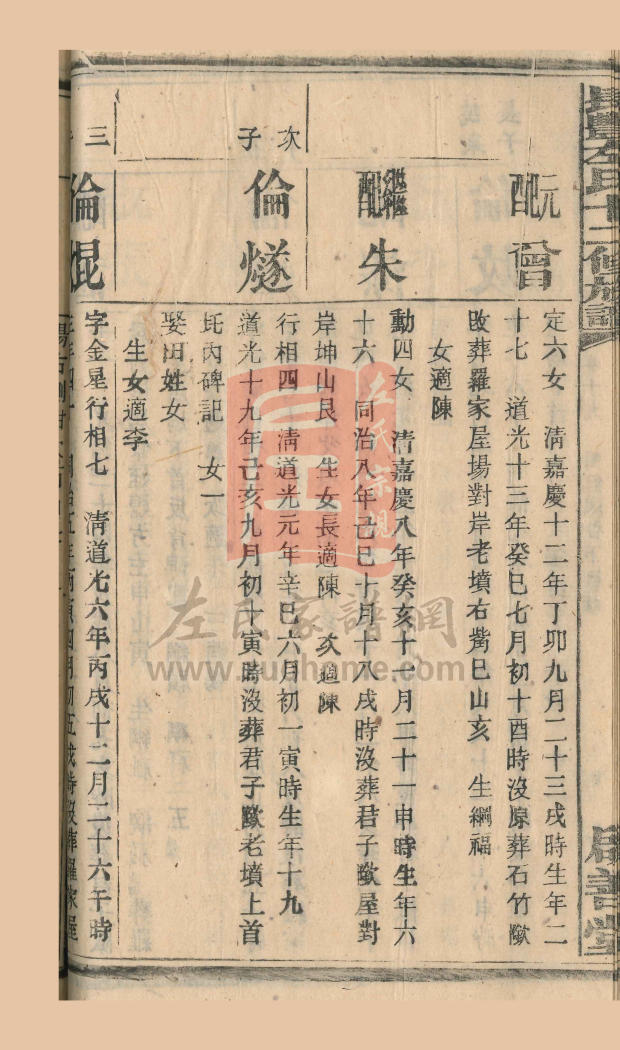 左氏十二修族譜
啟善堂
元配曾
定六女 清嘉慶十二年丁卯九月二十三戌時生年二
十七 道光十三年癸巳七月初十酉時沒原葬石竹𡼏
改葬羅家屋場對岸老墳右嘴巳山亥 生綱福
女適陳
繼配朱
動四女 清嘉慶八年癸亥十一月二十一申時生年六
十六 同治八年己巳十月十八戌時沒葬君子𡼏屋對
岸坤山艮 生女長適陳 次適陳
次子
倫燧
行相四 清道光元年辛巳六月初一寅時生年十九
道光十九年己亥九月初十寅時沒葬君子𡼏老墳上首
氏內碑記 女一
娶田姓女
生女適李
三子
倫焜
字金星行相七 清道光六年丙戌十二月二十六午時
同治五年丙寅四月初五戌時沒葬羅家屋
左氏宗親
左氏家譜網
www.zuohome.com